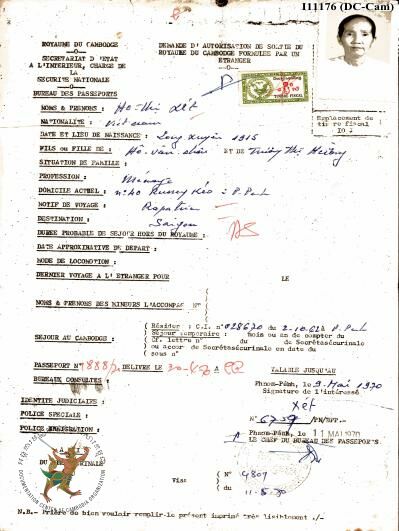 111176 (DC-Cam)
ROYAUME DU CAMBODGE
—o—
SECRETARIAT D'ETAT
A L'INTERIEUR, CHARGE DE LA
SECURITE NATIONALE
—o—
BUREAU DES PASSEPORTS
DEMANDE D'AUTORISATION DE SORTIE DU
ROYAUME DU CAMBODGE FORMULEE PAR UN
ETRANGER
—o—
TIMBRE FISCAL
Emplacement de
timbre fiscal
10 J
NOMS & PRENOMS : Hô-thi Xêt
NATIONALITE : Vietnam
DATE ET LIEU DE NAISSANCE : Long Xuyên 1915
FILS ou FILLE de : Hô-văn- ET DE Trương thị Hường
SITUATION DE FAMILLE :
PROFESSION : Ménage
DOMICILE ACTUEL : n°40 Russey Kéo - P-Penh
MOTIF DE VOYAGE : Rapatrié
DESTINATION : Saigon
DUREE PROBABLE DE SEJOUR HORS DU ROYAUME :
DATE APPROXIMATIVE DE DEPART :
MODE DE LOCOMOTION :
DERNIER VOYAGE A L'ETRANGER POUR LE
NOMS & PRENOMS DES MINEURS L'ACCOMPAGNANT
SEJOUR AU CAMBODGE :
( Résider : C.I. n° 028670 du 2-10-62 à P-Penh
( Séjour temporaire : mois ou an de compter du
( Cf. lettre n° du de Secrétasécurinale
( ou accor de Secrétasécurinale en date du
( sous n°
PASSEPORT N° 1888/ DELIVRE LE 30-4-70 à PP
VALABLE JUSQU'AU
BUREAUX CONSULTES :
Phnom-Pénh, le 9-Mai 1970
Signature de l'intéressé
xêt
IDENTITE JUDICIAIRE :
N° 6759
POLICE SPECIALE :
Phnom-Pénh, le 11 MAI 1970
POLICE IMMIGRATION :
LE CHEF DU BUREAU DES PASSEPORTS
Visa
( N° 4801
( du 11-5-70
N.B.- Prière de bien vouloir remplir le présent imprimé très lisiblement ./-